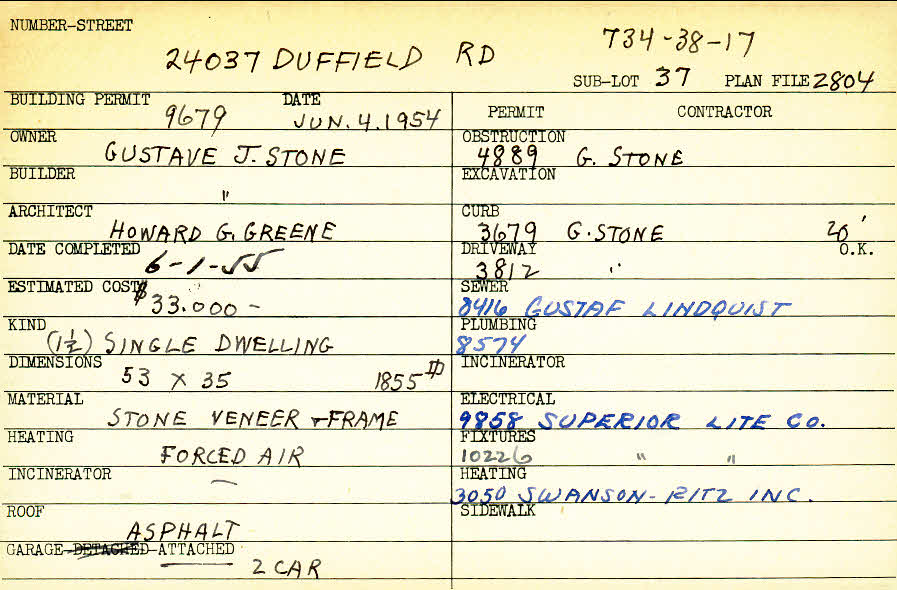 NUMBER-STREET
734-38-17
24037 DUFFIELD RD
SUB-LOT 37 PLAN FILE 2804
BUILDING PERMIT DATE
9679 JUN. 4. 1954
PERMIT CONTRACTOR
OWNER
GUSTAVE J. STONE
OBSTRUCTION
4889 G. STONE
BUILDER
"
EXCAVATION
ARCHITECT
HOWARD G. GREENE
CURB
3679 G. STONE 20'
DATE COMPLETED
6-1-55
DRIVEWAY O.K.
3812 "
ESTIMATED COST
$33.000-
SEWER
8416 GUSTAF LINDQUIST
KIND
(1½) SINGLE DWELLING
PLUMBING
8574
DIMENSIONS
53 X 35 1855
INCINERATOR
MATERIAL
STONE VENEER + FRAME
ELECTRICAL
9858 SUPERIOR LITE CO.
HEATING
FORCED AIR
FIXTURES
10226 " "
INCINERATOR
—
HEATING
3050 SWANSON-RITZ INC.
ROOF
ASPHALT
SIDEWALK
GARAGE-DETACHED-ATTACHED
2 CAR